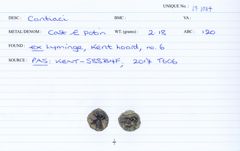 UNIQUE No:
DESC: Contraci BMC: VA:
METAL/DENOM: Cast Æ Potin WT. (grams): 2.18 ABC: 120
FOUND: ex Lyminge, Kent hoard, no. 6
SOURCE: PAS: KENT- 2017 T606